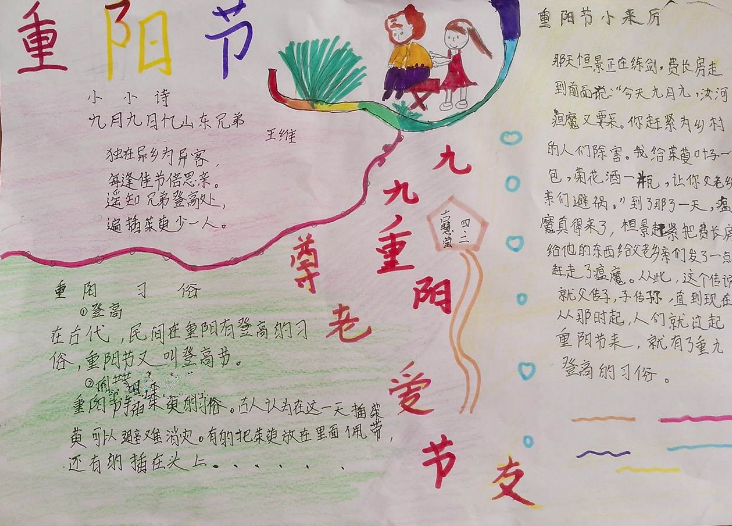 重阳节
小小诗
九月九日忆山东兄弟
王维
独在异乡为异客，
每逢佳节倍思亲。
遥知兄弟登高处，
遍插茱萸少一人。
重阳习俗
①登高
在古代，民间在重阳有登高的习
俗，重阳节又叫登高节。
②
重阳节插茱萸的习俗。古人认为在这一天插茱
萸可以避难消灾。有的把茱萸放在里面佩带，
还有的插在头上......
九九重阳
尊老爱
节
友
四.二
重阳节小来历
那天恒景正在练剑。费长房走
到前面说：“今天九月九，汝河
瘟魔又要来。你赶紧为乡村
的人们除害。我给茱萸叶子一
包，菊花酒一瓶，让你父老乡
亲们避祸。”到了那了一天，瘟
魔真得来了，桓景赶紧把费长房
给他的东西给父老乡亲们发了一点
赶走了瘟魔。从此，这个传说
就父传子，子传孙，直到现在
从那时起，人们就过起
重阳节来，就有了重九
登高的习俗。